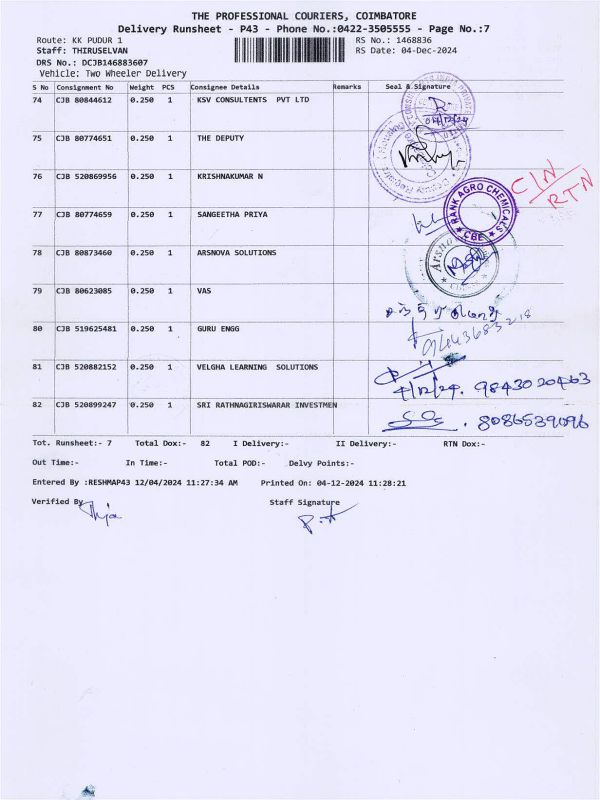 THE PROFESSIONAL COURIERS, COIMBATORE
Delivery Runsheet - P43 - Phone No.:0422-3505555 - Page No.:7
Route: KK PUDUR 1 RS No.: 1468836
Staff: THIRUSELVAN RS Date: 04-Dec-2024
DRS No.: DCJB146883607
Vehicle: Two Wheeler Delivery
S No Consignment No Weight PCS Consignee Details Remarks Seal & Signature
74 CJB 80844612 0.250 1 KSV CONSULTENTS PVT LTD
04/12/24
75 CJB 80774651 0.250 1 THE DEPUTY
76 CJB 520869956 0.250 1 KRISHNAKUMAR N
C/N
RTN
77 CJB 80774659 0.250 1 SANGEETHA PRIYA
RANK AGRO CHEMICALS
CBE
78 CJB 80873460 0.250 1 ARSNOVA SOLUTIONS
79 CJB 80623085 0.250 1 VAS
80 CJB 519625481 0.250 1 GURU ENGG
9443683218
81 CJB 520882152 0.250 1 VELGHA LEARNING SOLUTIONS
4/12/24. 9843020463
82 CJB 520899247 0.250 1 SRI RATHNAGIRISWARAR INVESTMEN
8086539096
Tot. Runsheet:- 7 Total Dox:- 82 I Delivery:- II Delivery:- RTN Dox:-
Out Time:- In Time:- Total POD:- Delvy Points:-
Entered By :RESHMAP43 12/04/2024 11:27:34 AM Printed On: 04-12-2024 11:28:21
Verified By Staff Signature